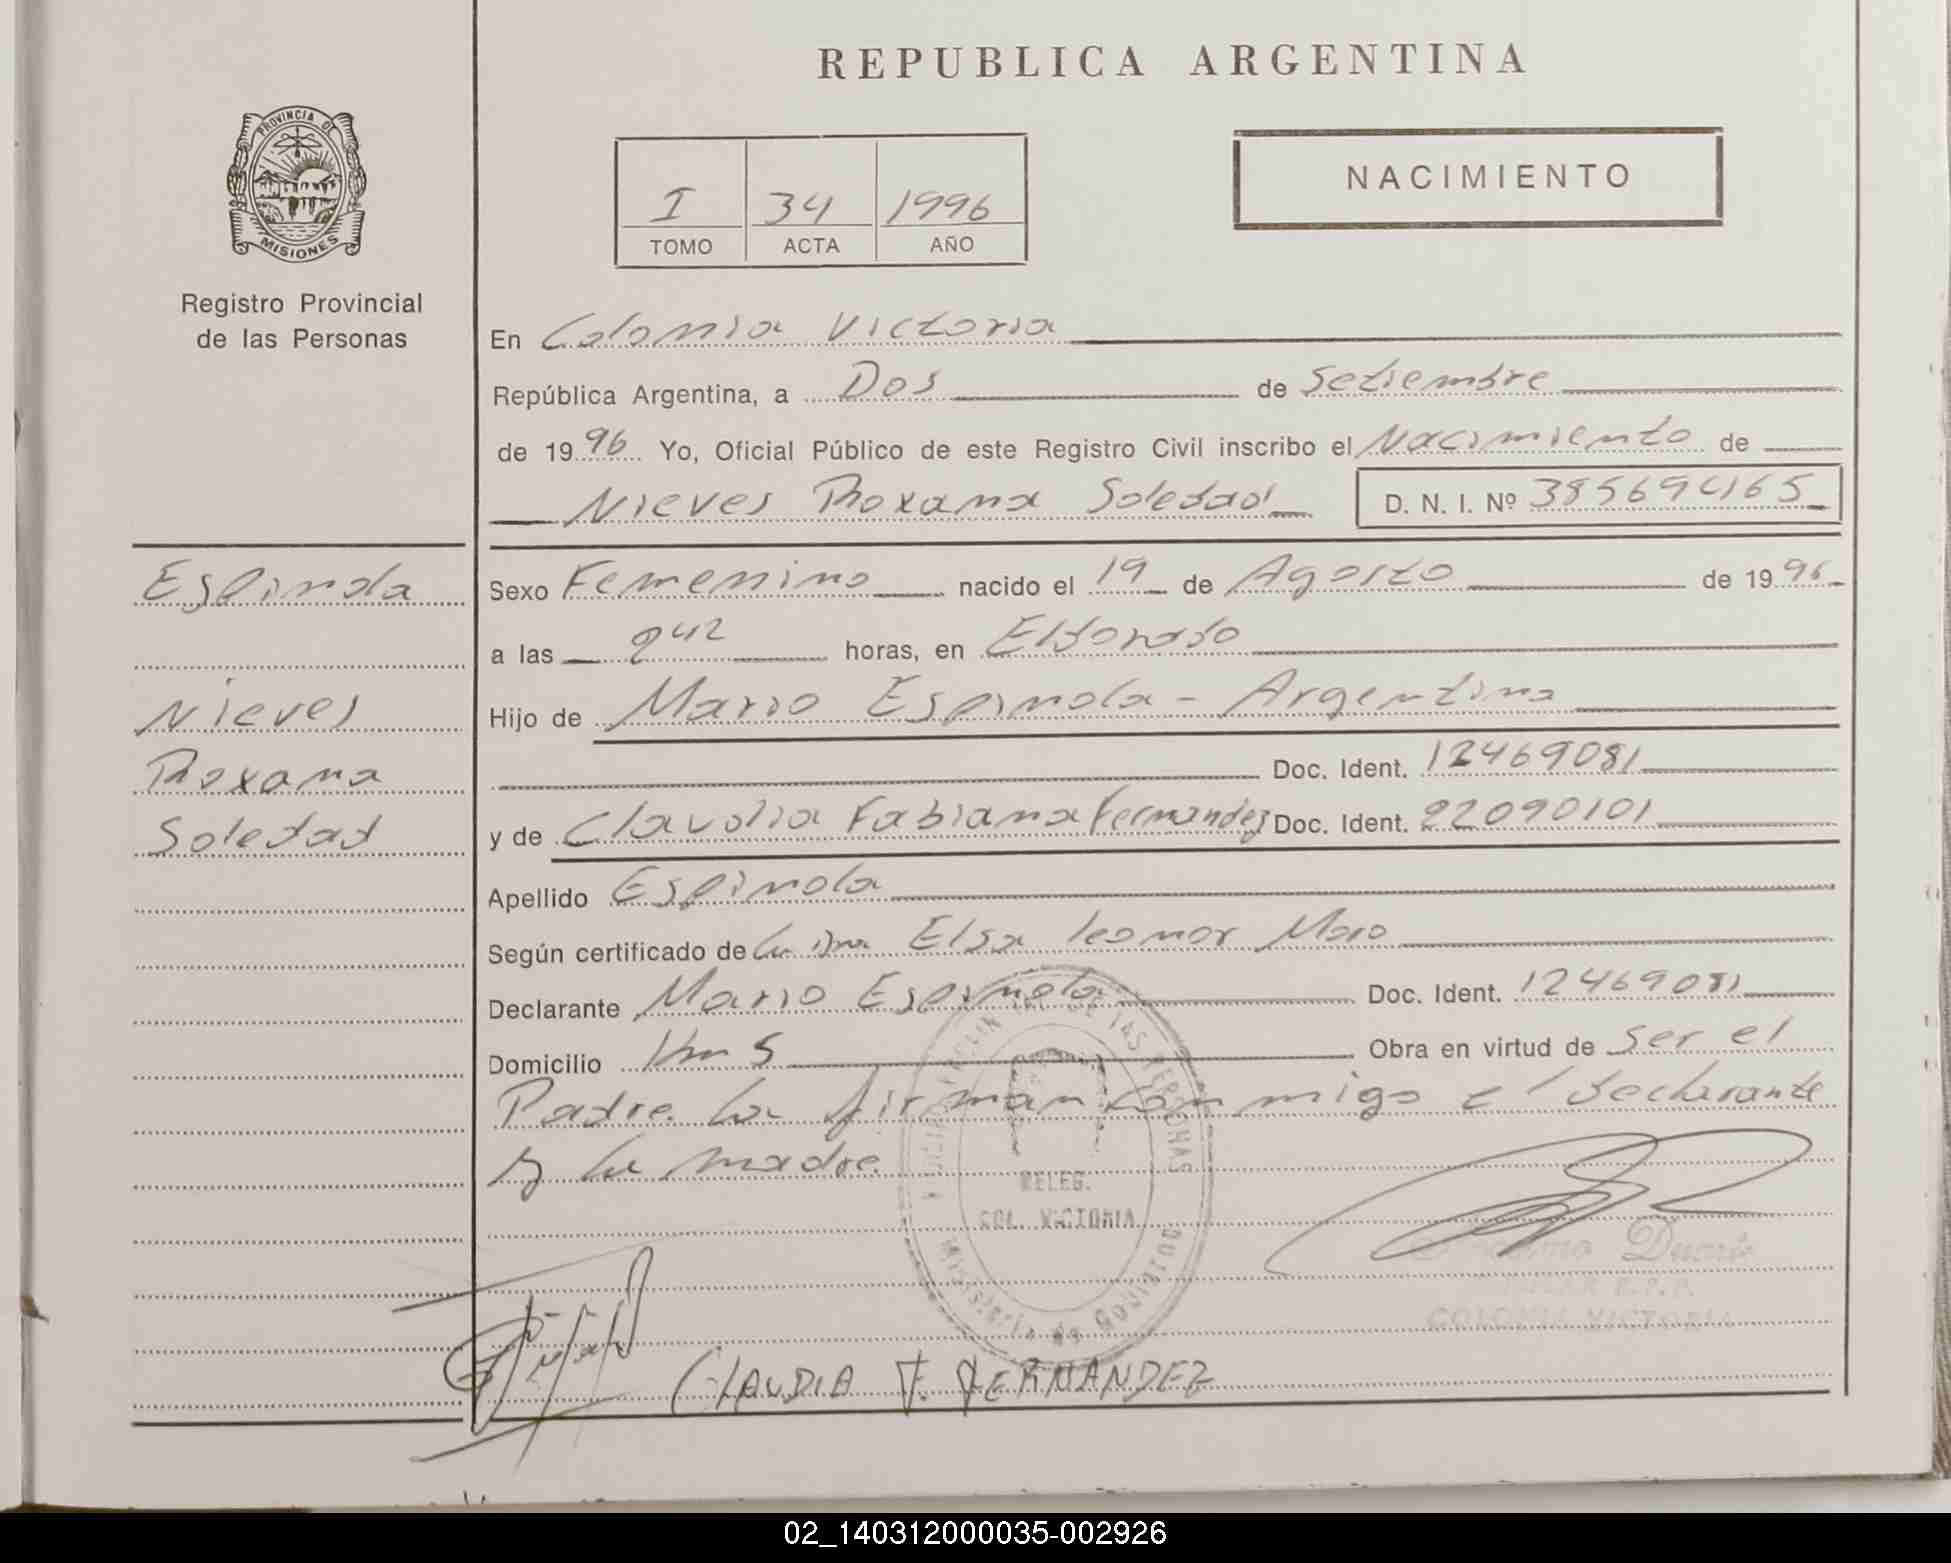 REPUBLICA ARGENTINA
PROVINCIA DE
MISIONES
Registro Provincial
de las Personas
I 34 1996
TOMO ACTA AÑO
NACIMIENTO
En Colonia Victoria
República Argentina, a Dos de Setiembre
de 1996 Yo, Oficial Público de este Registro Civil inscribo el Nacimiento de
Nieves Roxana Soledad D. N. I. Nº 38569465
Espinola
Nieves
Roxana
Soledad
Sexo Femenino nacido el 19 de Agosto de 1996
a las 942 horas, en Eldorado
Hijo de Mario Espinola - Argentino
Doc. Ident. 12469081
y de Claudia Fabiana Fernandez Doc. Ident. 22090101
Apellido Espinola
Según certificado de la Elsa Leonor
Declarante Mario Espinola Doc. Ident. 12469081
Domicilio Km 5 Obra en virtud de ser el
Padre. La firman conmigo el declarante
y la madre.
DE LAS PERSONAS
DELEG.
COL. VICTORIA
Ministerio de Gobierno
COLONIA VICTORIA
CLAUDIA F. FERNANDEZ
02_140312000035-002926